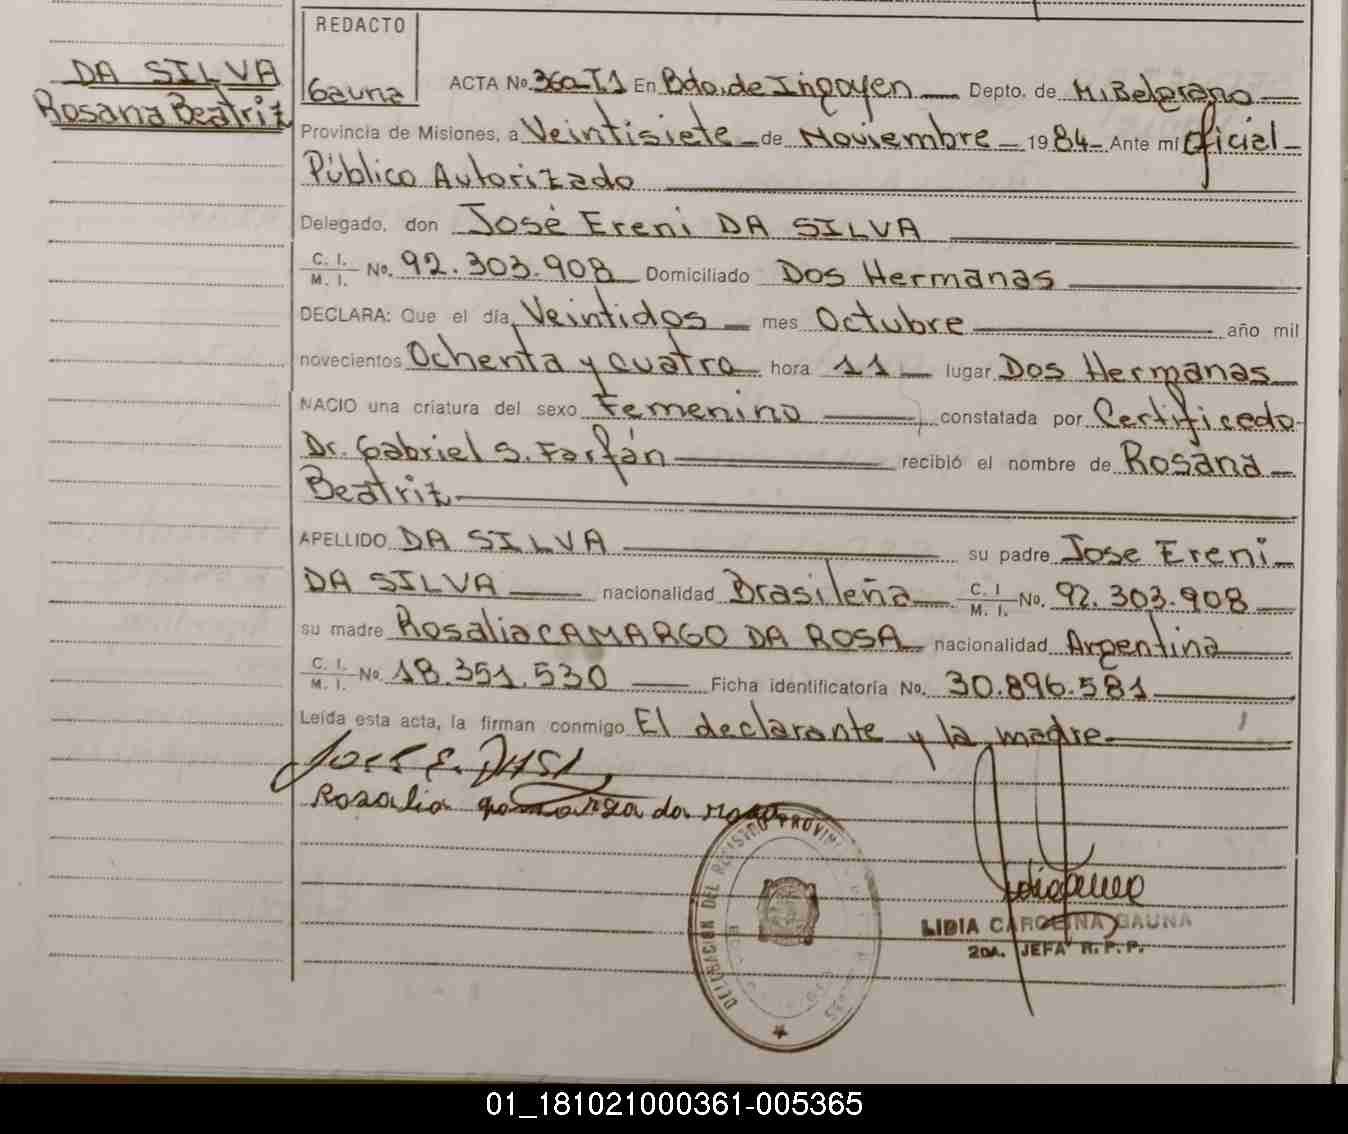 REDACTO
DA SILVA
Rosana Beatriz
Gauna
ACTA No. 360-T1 En Bdo. de Irigoyen Depto. de M. Belgrano
Provincia de Misiones, a Veintisiete de Noviembre 1984 Ante mí Oficial
Público Autorizado
Delegado, don José Ereni DA SILVA
C. I. M. I. No. 92.303.908 Domiciliado Dos Hermanas
DECLARA: Que el día, Veintidos mes Octubre año mil
novecientos Ochenta y cuatro hora 11 lugar Dos Hermanas
NACIO una criatura del sexo Femenino constatada por Certificado
Dr. Gabriel S. Farfán recibió el nombre de Rosana
Beatriz
APELLIDO DA SILVA su padre Jose Ereni
DA SILVA nacionalidad Brasileña C. I M. I. No. 92.303.908
su madre Rosalia CAMARGO DA ROSA nacionalidad Argentina
C. I. M. I. No. 18.351.530 Ficha identificatoria No. 30.896.581
Leída esta acta, la firman conmigo El declarante y la madre
Rosalia da rosa
DELEGACION DEL REGISTRO
LIDIA CAROLINA GAUNA
2DA. JEFA R. P. P.
01_181021000361-005365